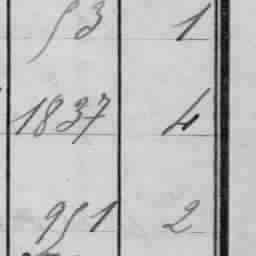 53 1
1837 4
951 2